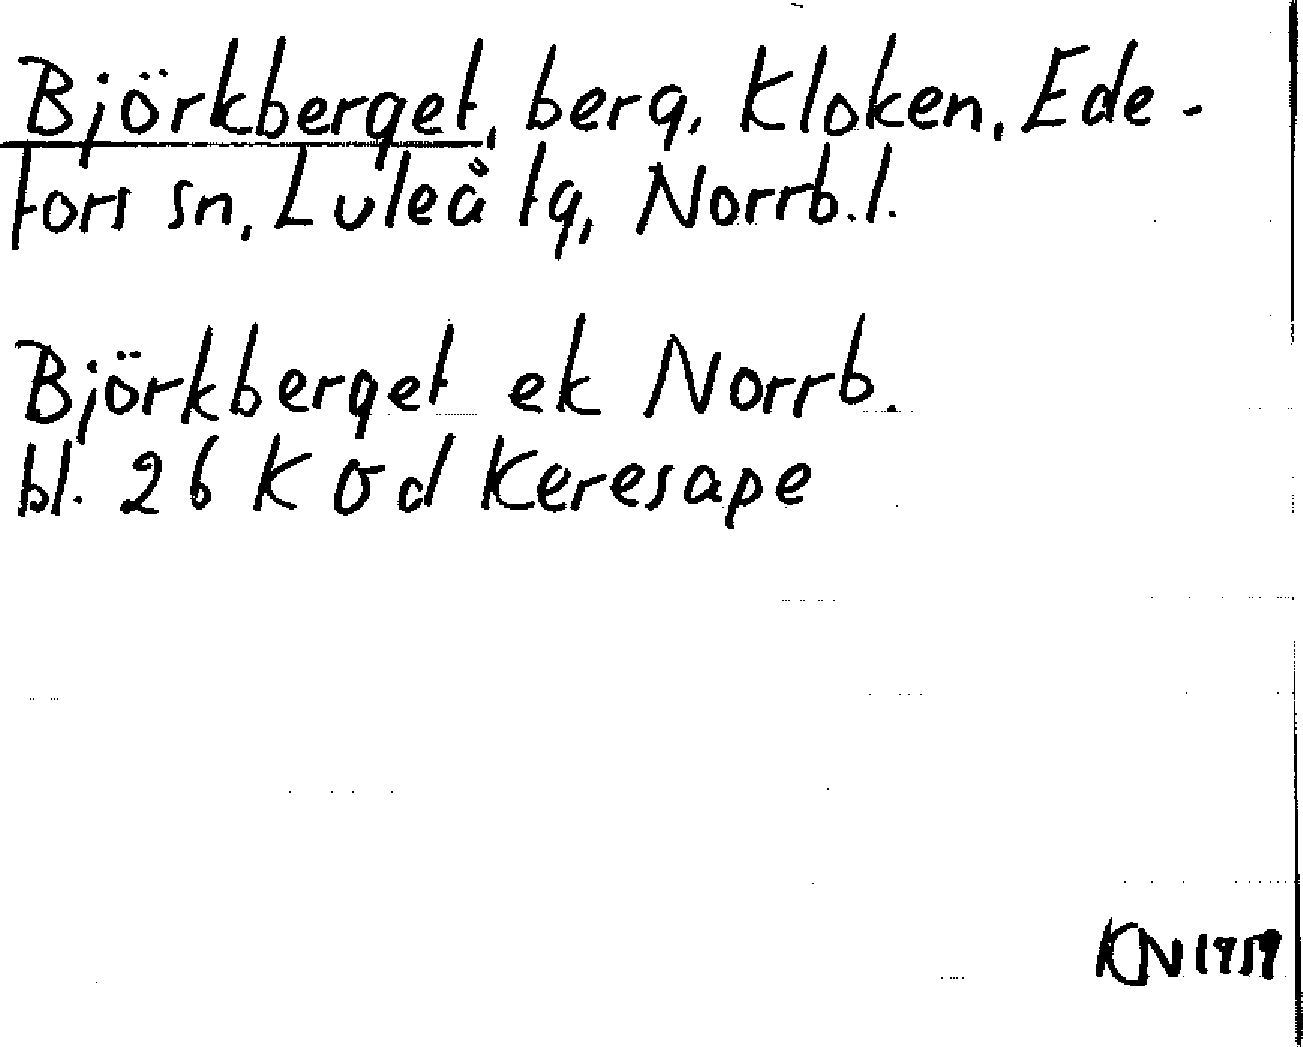 Björkberget, berg, Kloken, Ede-
fors sn, Luleå tg, Norrb. l.
Björkberget ek Norrb.
bl. 26 K od Keresape
KN 1959